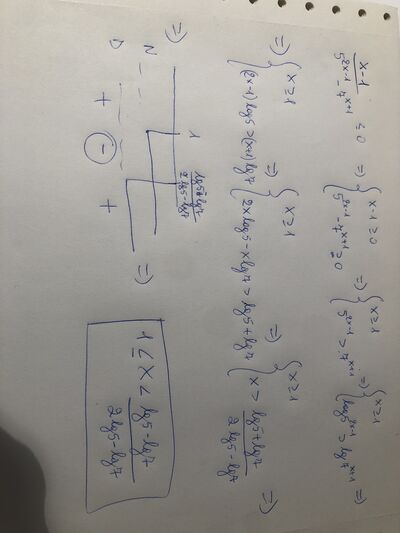 x-1 / 5^(2x-1) - 7^(x+1) ≤ 0 => { x-1 ≥ 0 ; 5^(2x-1) - 7^(x+1) ≥ 0 => { x ≥ 1 ; 5^(2x-1) > 7^(x+1) => { x ≥ 1 ; lg5^(2x-1) > lg7^(x+1) =>
=> { x ≥ 1 ; (2x-1) lg5 > (x+1) lg7 => { x ≥ 1 ; 2x lg5 - x lg7 > lg5 + lg7 => { x ≥ 1 ; x > lg5 + lg7 / 2lg5 - lg7 =>
=>
1 lg5 + lg7 / 2lg5 - lg7
N
D + - + =>
1 ≤ x < lg5 - lg7 / 2lg5 - lg7